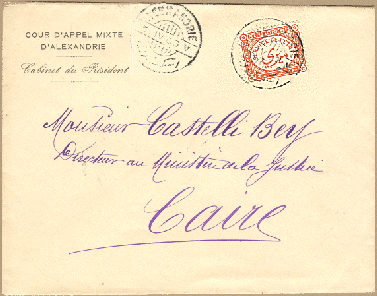 COUR D'APPEL MIXTE
D'ALEXANDRIE
Cabinet du Président
Monsieur Castelli Bey
Directeur au Ministère de la Justice
Caire